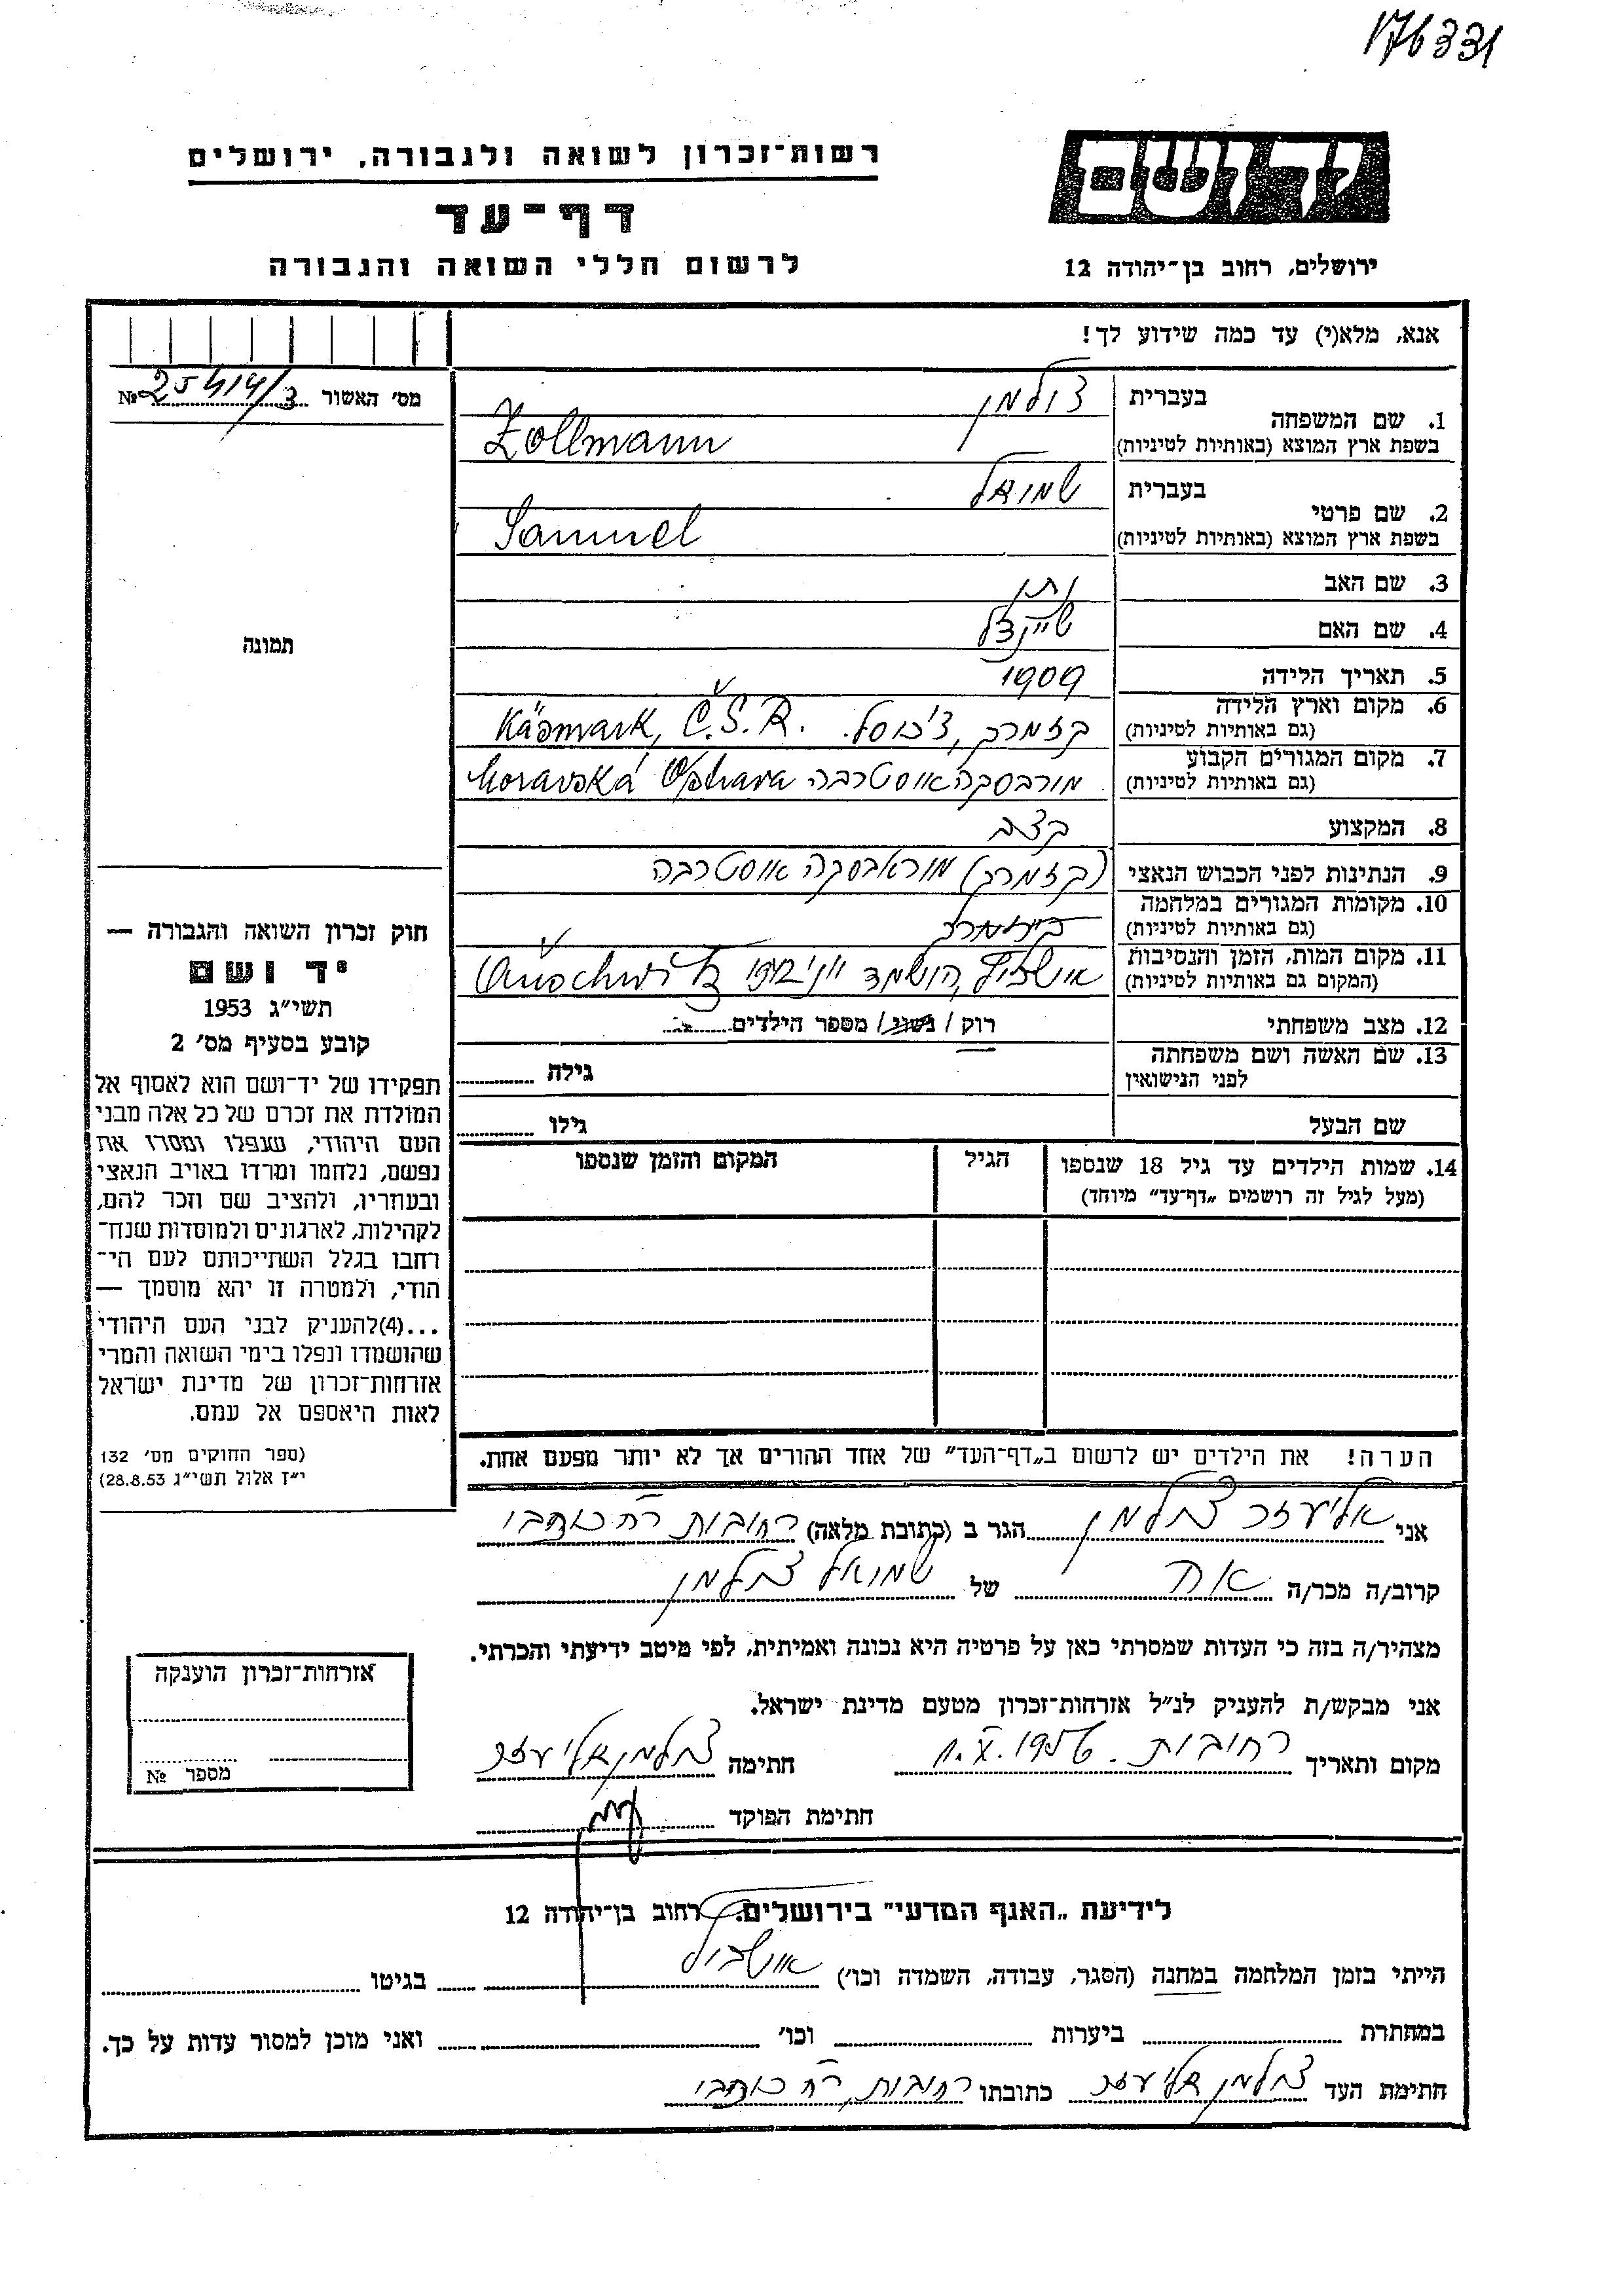 176331
יד ושם
ירושלים, רחוב בן-יהודה 12
רשות-זכרון לשואה ולגבורה, ירושלים
דף-עד
לרשום חללי השואה והגבורה
אנא, מלא(י) עד כמה שידוע לך!
מס' האשור № 25414/3
1. שם המשפחה
בעברית צולמן
בשפת ארץ המוצא (באותיות לטיניות) Zollmann
2. שם פרטי
בעברית שמואל
בשפת ארץ המוצא (באותיות לטיניות) Samuel
3. שם האב נתן
4. שם האם שיינדל
5. תאריך הלידה 1909
6. מקום וארץ הלידה
(גם באותיות לטיניות) קזמרק, צ'כוסל. Käsmark, Č.S.R.
7. מקום המגורים הקבוע
(גם באותיות לטיניות) מורבסקה אוסטרבה Moravská Ostrava
8. המקצוע קצב
9. הנתינות לפני הכבוש הנאצי (קזמרק) מוראבסקה אוסטרבה
10. מקומות המגורים במלחמה
(גם באותיות לטיניות)
11. מקום המות, הזמן והנסיבות
(המקום גם באותיות לטיניות) אושויץ, הושמד יוני 1942 Auschwitz
12. מצב משפחתי רוק / נשוי / מספר הילדים
13. שם האשה ושם משפחתה
לפני הנישואין
גילה
שם הבעל
גילו
14. שמות הילדים עד גיל 18 שנספו
(מעל לגיל זה רושמים „דף-עד" מיוחד)
הגיל
המקום והזמן שנספו
תמונה
חוק זכרון השואה והגבורה —
יד ושם
תשי"ג 1953
קובע בסעיף מס' 2
תפקידו של יד-ושם הוא לאסוף אל
המולדת את זכרם של כל אלה מבני
העם היהודי, שנפלו ומסרו את
נפשם, נלחמו ומרדו באויב הנאצי
ובעוזריו, ולהציב שם וזכר להם,
לקהילות, לארגונים ולמוסדות שנח-
רחבו בגלל השתייכותם לעם הי-
הודי, ולמטרה זו יהא מוסמך —
...(4)להעניק לבני העם היהודי
שהושמדו ונפלו בימי השואה והמרי
אזרחות-זכרון של מדינת ישראל
לאות היאספם אל עמם.
(ספר החוקים מס' 132
י"ז אלול תשי"ג 28.8.53)
הערה! את הילדים יש לרשום ב„דף-העד" של אחד ההורים אך לא יותר מפעם אחת.
אני אליעזר צולמן הגר ב (כתובת מלאה) רחובות
קרוב/ה מכר/ה אח של שמואל צולמן
מצהיר/ה בזה כי העדות שמסרתי כאן על פרטיה היא נכונה ואמיתית, לפי מיטב ידיעתי והכרתי.
אני מבקש/ת להעניק לנ"ל אזרחות-זכרון מטעם מדינת ישראל.
מקום ותאריך רחובות 1.X.1956 חתימה צולמן אליעזר
חתימת הפוקד
אזרחות-זכרון הוענקה
מספר №
לידיעת „האגף המדעי" בירושלים, רחוב בן-יהודה 12
הייתי בזמן המלחמה במחנה (הסגר, עבודה, השמדה וכו') בגיטו
במחתרת ביערות וכו' ואני מוכן למסור עדות על כך.
חתימת העד צולמן אליעזר כתובתו רחובות,